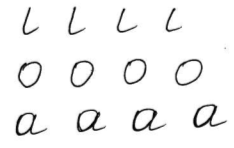 l l l l
o o o o
a a a a